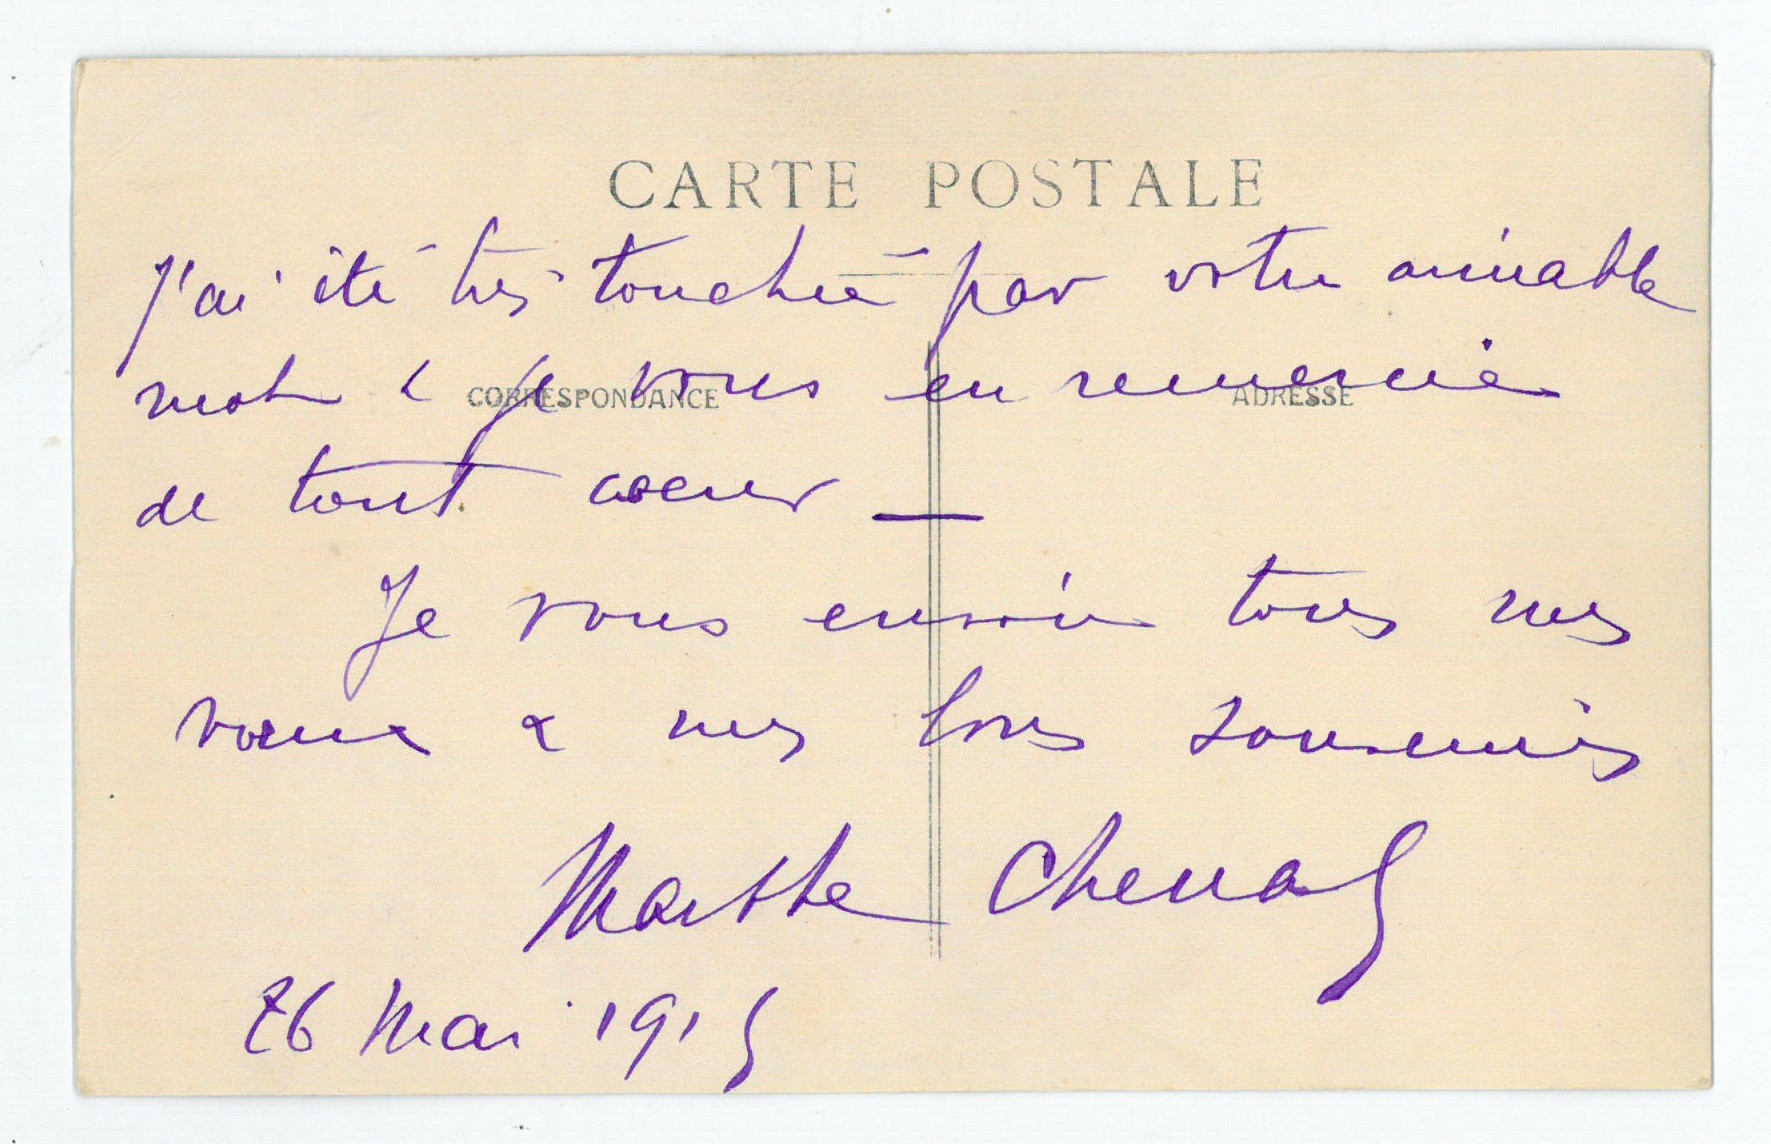 CARTE POSTALE
J'ai été très touchée par votre aimable
mot & je vous en remercie
CORRESPONDANCE
ADRESSE
de tout coeur —
Je vous envoie tous mes
voeux & mes bons souvenirs
Marthe Chenal
26 Mai 1915